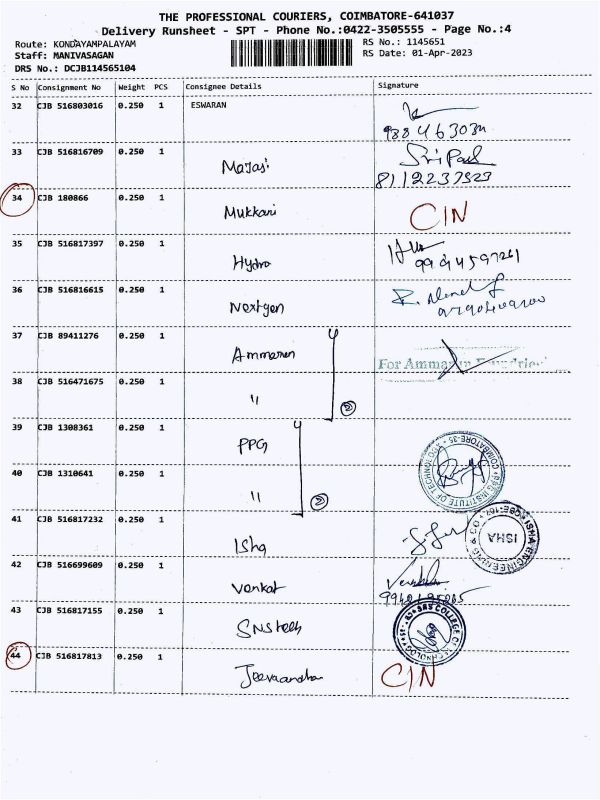 THE PROFESSIONAL COURIERS, COIMBATORE-641037
Delivery Runsheet - SPT - Phone No.:0422-3505555 - Page No.:4
Route: KONDAYAMPALAYAM RS No.: 1145651
Staff: MANIVASAGAN RS Date: 01-Apr-2023
DRS No.: DCJB114565104
S No Consignment No Weight PCS Consignee Details Signature
32 CJB 516803016 0.250 1 ESWARAN
33 CJB 516816709 0.250 1
8112237323
34 CJB 180866 0.250 1 Mukkani CIN
35 CJB 516817397 0.250 1 Hydro
36 CJB 516816615 0.250 1 Nextgen
37 CJB 89411276 0.250 1 Ammarun
For Ammarun Foundries
38 CJB 516471675 0.250 1 "
2
39 CJB 1308361 0.250 1 PPG
40 CJB 1310641 0.250 1 "
2
41 CJB 516817232 0.250 1 Isha
ISHA
42 CJB 516699609 0.250 1 Venkat
43 CJB 516817155 0.250 1 SNS tech
44 CJB 516817813 0.250 1 CIN